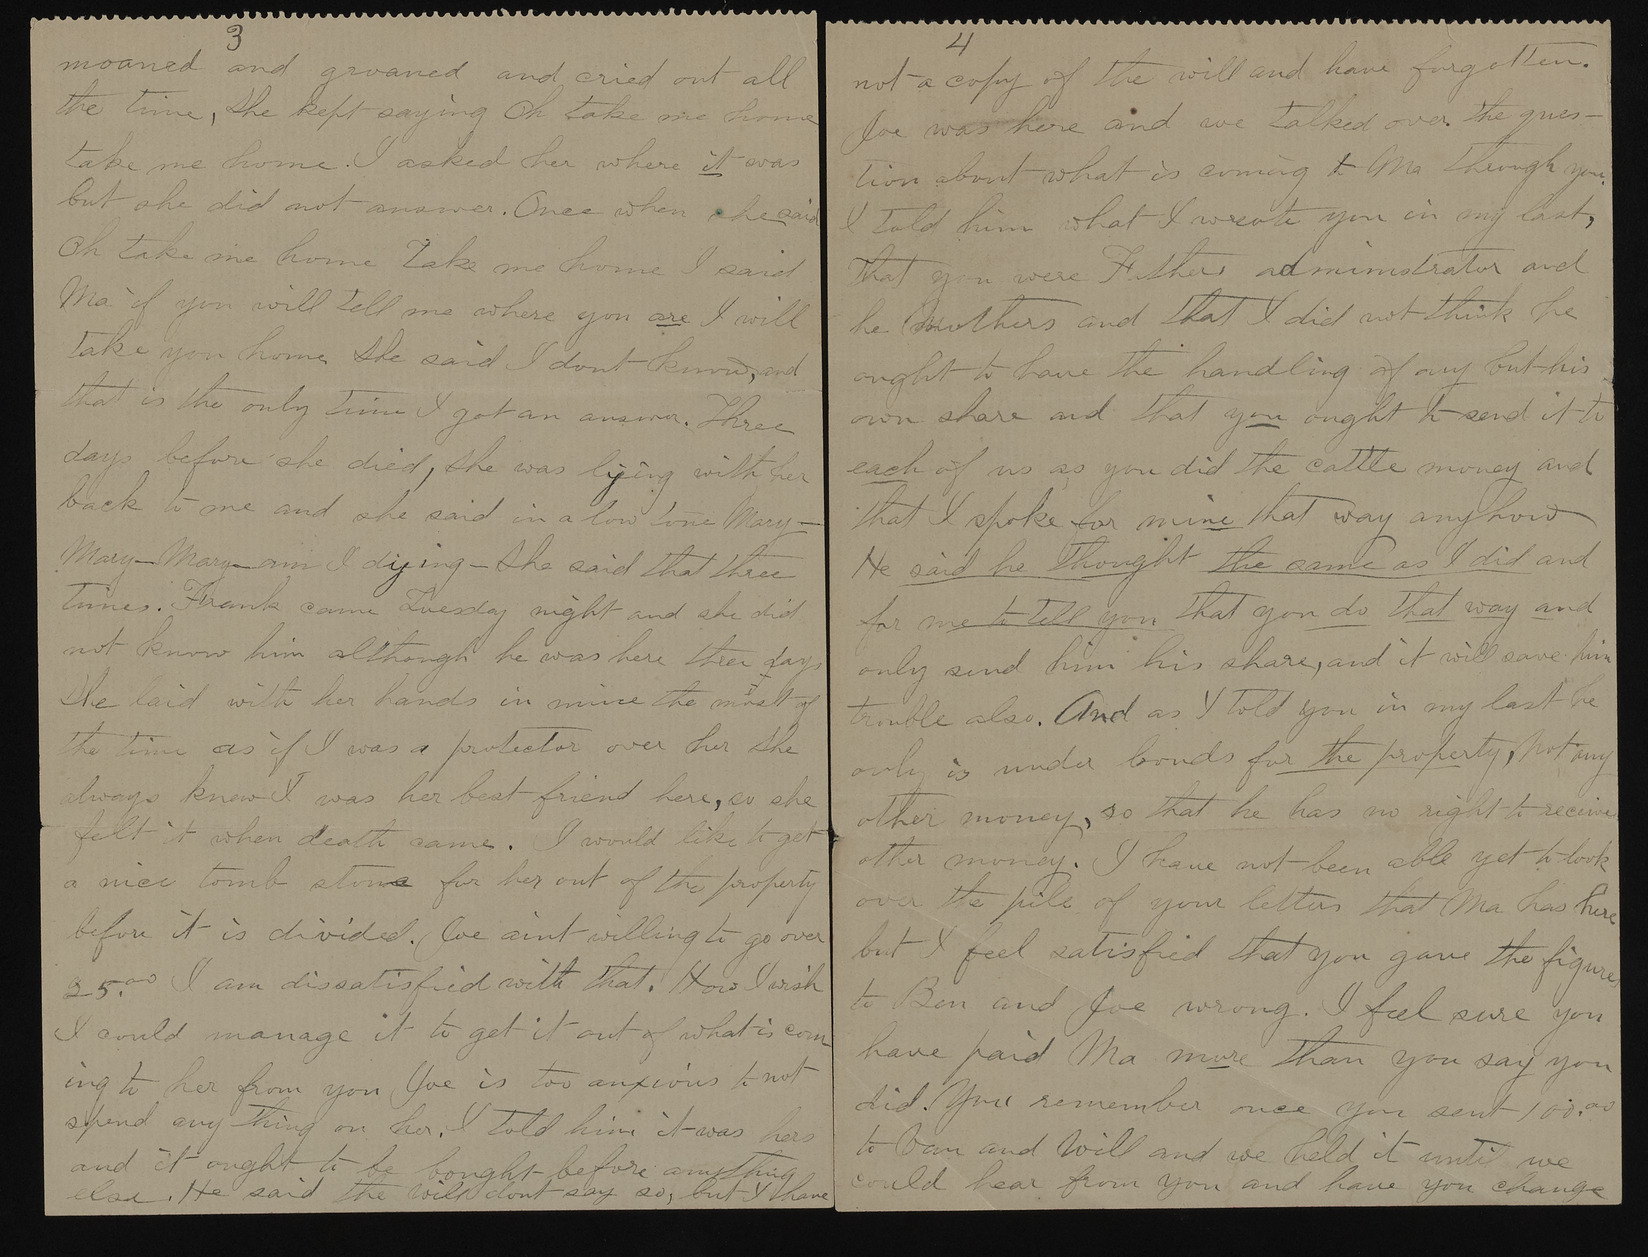 3
moaned and groaned and cried out all
the time, She kept saying Oh take me home
take me home. I asked her where it was
but she did not answer. Once when she said
Oh take me home Take me home I said
Ma if you will tell me where you are I will
take you home She said I dont know, and
that is the only time I got an answer. Three
days before she died, She was lijing with her
back to me and she said in a low tone Mary—
Mary—Mary—am I dijing—She said that three
times. Frank came Tuesday night and she did
not know him although he was here three days
She laid with her hands in mine the most of
the time as if I was a protector over her She
always knew I was her best friend here, so she
felt it when death came. I would like to get
a nice tomb stone for her out of the property
before it is divided. Joe aint willing to go over
25.00 I am dissatisfied with that. How I wish
I could manage it to get it out of what is com-
ing to her from you Joe is too anxious to not
spend any thing on her. I told him it was hers
and it ought to be bought before anything
else. He said the will dont say so, but I have
4
not a copy of the will and have forgotten.
Joe was here and we talked over the ques-
tion about what is coming to Ma through you.
I told him what I wrote you in my last,
that you were Fathers administrator and
he Mothers and that I did not think he
ought to have the handling of any but his
own share and that you ought to send it to
each of us as you did the cattle money and
that I spoke for mine that way anyhow
He said he thought the same as I did and
for me to tell you that you do that way and
only send him his share, and it will save him
trouble also. And as I told you in my last he
only is under bonds for the property, Not any
other money, so that he has no right to receive
other money. I have not been able yet to look
over the pile of your letters that Ma has here
but I feel satisfied that you gave the figures
to Ben and Joe wrong. I feel sure you
have paid Ma more than you say you
did. You remember once you sent 100.00
to Dan and Will and we held it until we
could hear from you and have you change